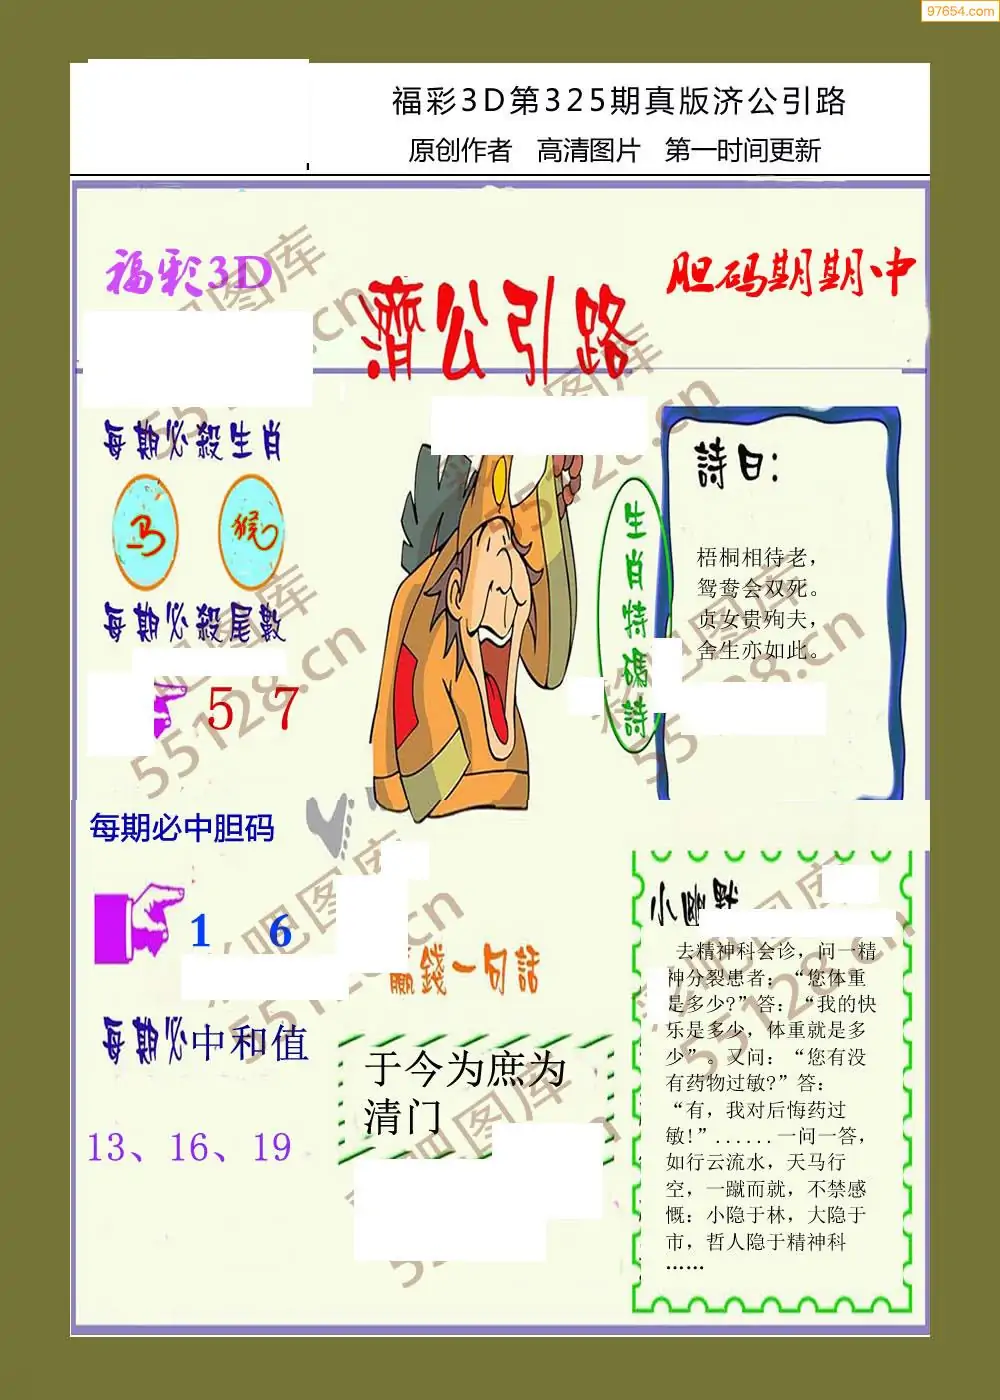 97654.com
福彩3D第325期真版济公引路
原创作者 高清图片 第一时间更新
福彩3D
胆码期期中
濟公引路
每期必殺生肖
马 猴
每期必殺尾數
5 7
每期必中胆码
1 6
每期必中和值
13、16、19
生肖特碼詩
詩曰：
梧桐相待老，
鸳鸯会双死。
贞女贵殉夫，
舍生亦如此。
贏錢一句話
于今为庶为
清门
小幽默
去精神科会诊，问一精
神分裂患者：“您体重
是多少?”答：“我的快
乐是多少，体重就是多
少”。又问：“您有没
有药物过敏?”答：
“有，我对后悔药过
敏!”......一问一答，
如行云流水，天马行
空，一蹴而就，不禁感
慨：小隐于林，大隐于
市，哲人隐于精神科
......
彩吧图库
55128.cn